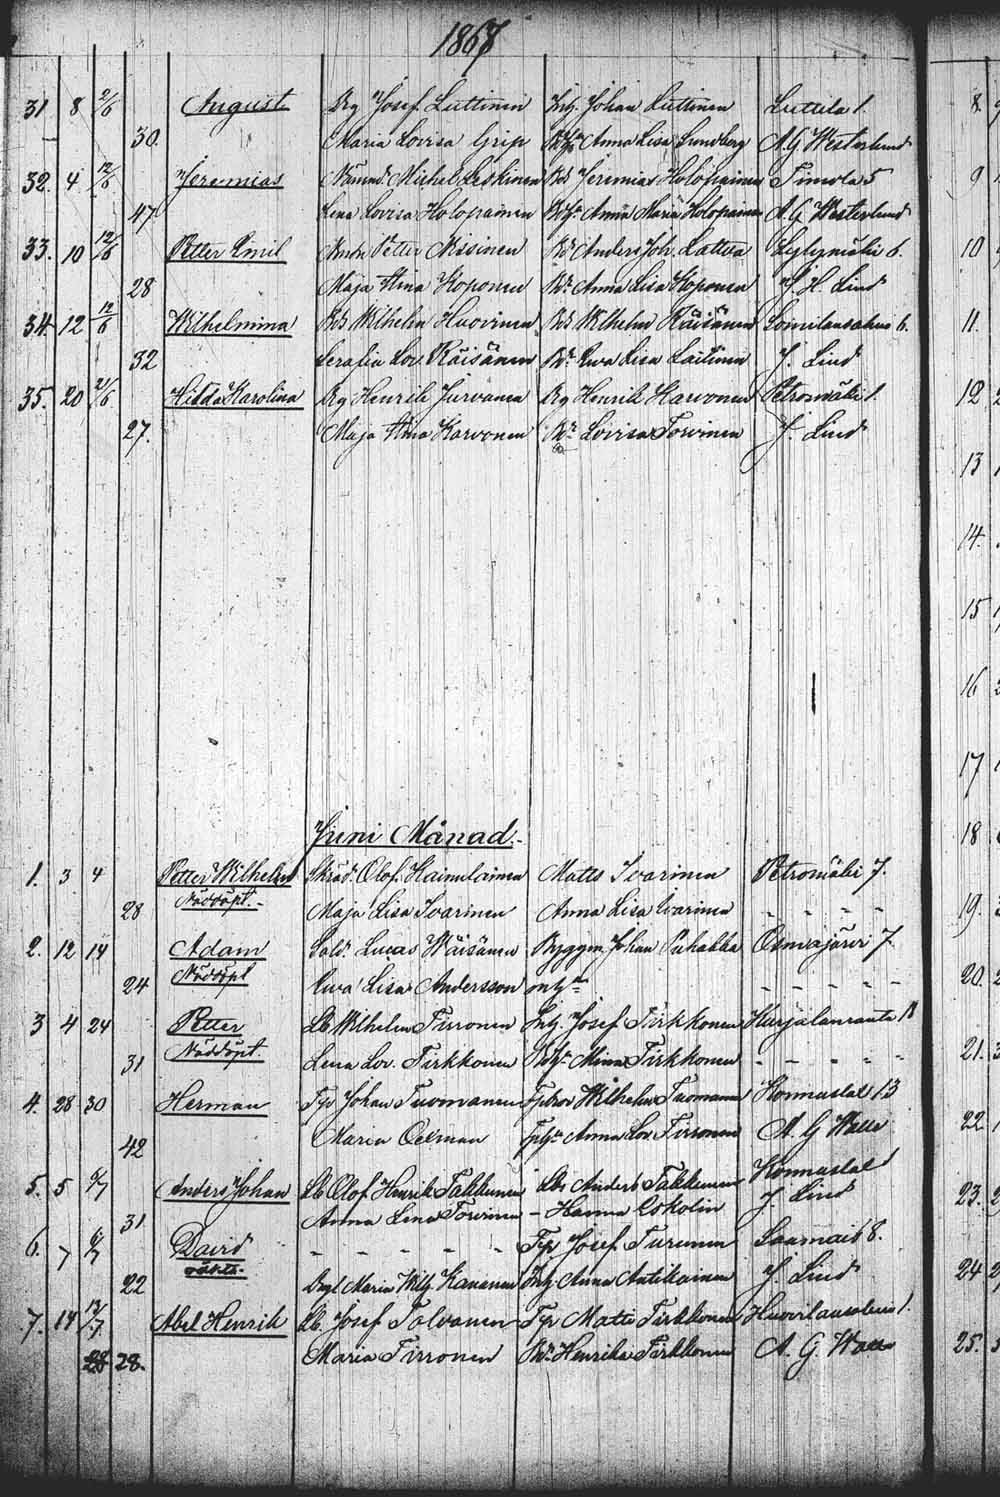 1867
31 8 2/6 August Bg Josef Luttinen Inhy. Johan Luttinen Luttila 1.
30. Maria Lovisa Grip Anna Lisa Sundberg A.G Westerlund
32. 4 12/6 Jeremias Nämnd. Michel Leskinen Bd Jeremias Holopainen Timola 5
47 Lena Lovisa Holopainen Anna Maria Holopainen A.G. Westerlund
33. 10 12/6 Petter Emil Petter Nissinen Anders Joh. Lattva 6.
28 Maja Stina Koponen Anna Lisa Koponen J. H. Lind
34 12 12/6 Wilhelmina Bds Wilhelm Huovinen Bds Wilhelm Räisänen 6.
32 Serafia Lov. Räisänen Ewa Lisa Laitinen J. Lind
35. 20 21/6 Hilda Karolina Bg Henrik Jurvanen Bg Henrik Karvonen Petromäki 1.
27. Maja Stina Karvonen Lovisa Torvinen J. Lind
Juni Månad.
1. 3 4 Petter Wilhelm Skräd. Olof Hainulainen Matts Ivarinen Petromäki 7.
28 Nöddöpt. Maja Lisa Ivarinen Anna Lisa Ivarinen - - - - -
2. 12 14 Adam Sold. Lucas Wäisänen Byggm. Johan Puhakka Osmajärvi 7.
24 Nöddöpt Ewa Lisa Andersson - - - - -
3 4 24 Petter Lb Wilhelm Tirronen Inhy. Josef Tirkkonen Kurjalanranta 18
31 Nöddöpt Lena Lov. Tirkkonen Mina Tirkkonen - - - - -
4. 28 30 Herman Tjr Johan Tuomanen Wilhelm Tuomanen Konnuslaks 13
42 Maria Oelman Anna Lov. Tirronen A. G Walle
5. 5 6/7 Anders Johan Lb Olof Henrik Takkunen Lbs Anders Takkunen Konnuslaks
31 Anna Lena Torvinen - Hanna Eskolin J. Lind
6. 7 6/7 David - - - - - Tjr Josef Turunen Saamais 8.
22 oäkta. Maria Wilh. Kananen Inhy. Anna Antikainen J. Lind
7. 14 13/7 Abel Henrik Lb. Josef Tolvanen Tjr Matts Tirkkonen Huovilansalmi 1.
28 28. Maria Tirronen Henrika Tirkkonen A. G. Walle
8
9
10
11.
12
13
14.
15
16
17
18
19.
20.
21.
22
23.
24
25.